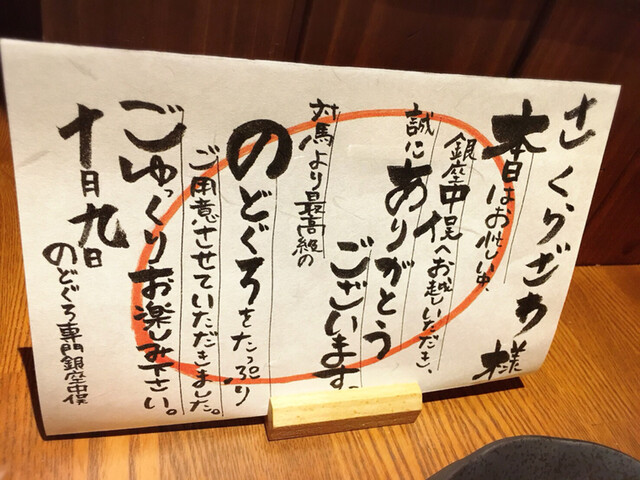 さくらざわ様
本日はお忙しい中、
銀座中俣へお越しいただき、
誠にありがとう
ございます。
対馬より最高級の
のどぐろをたっぷり
ご用意させていただきました。
ごゆっくりお楽しみ下さい。
十月九日
のどぐろ専門銀座中俣